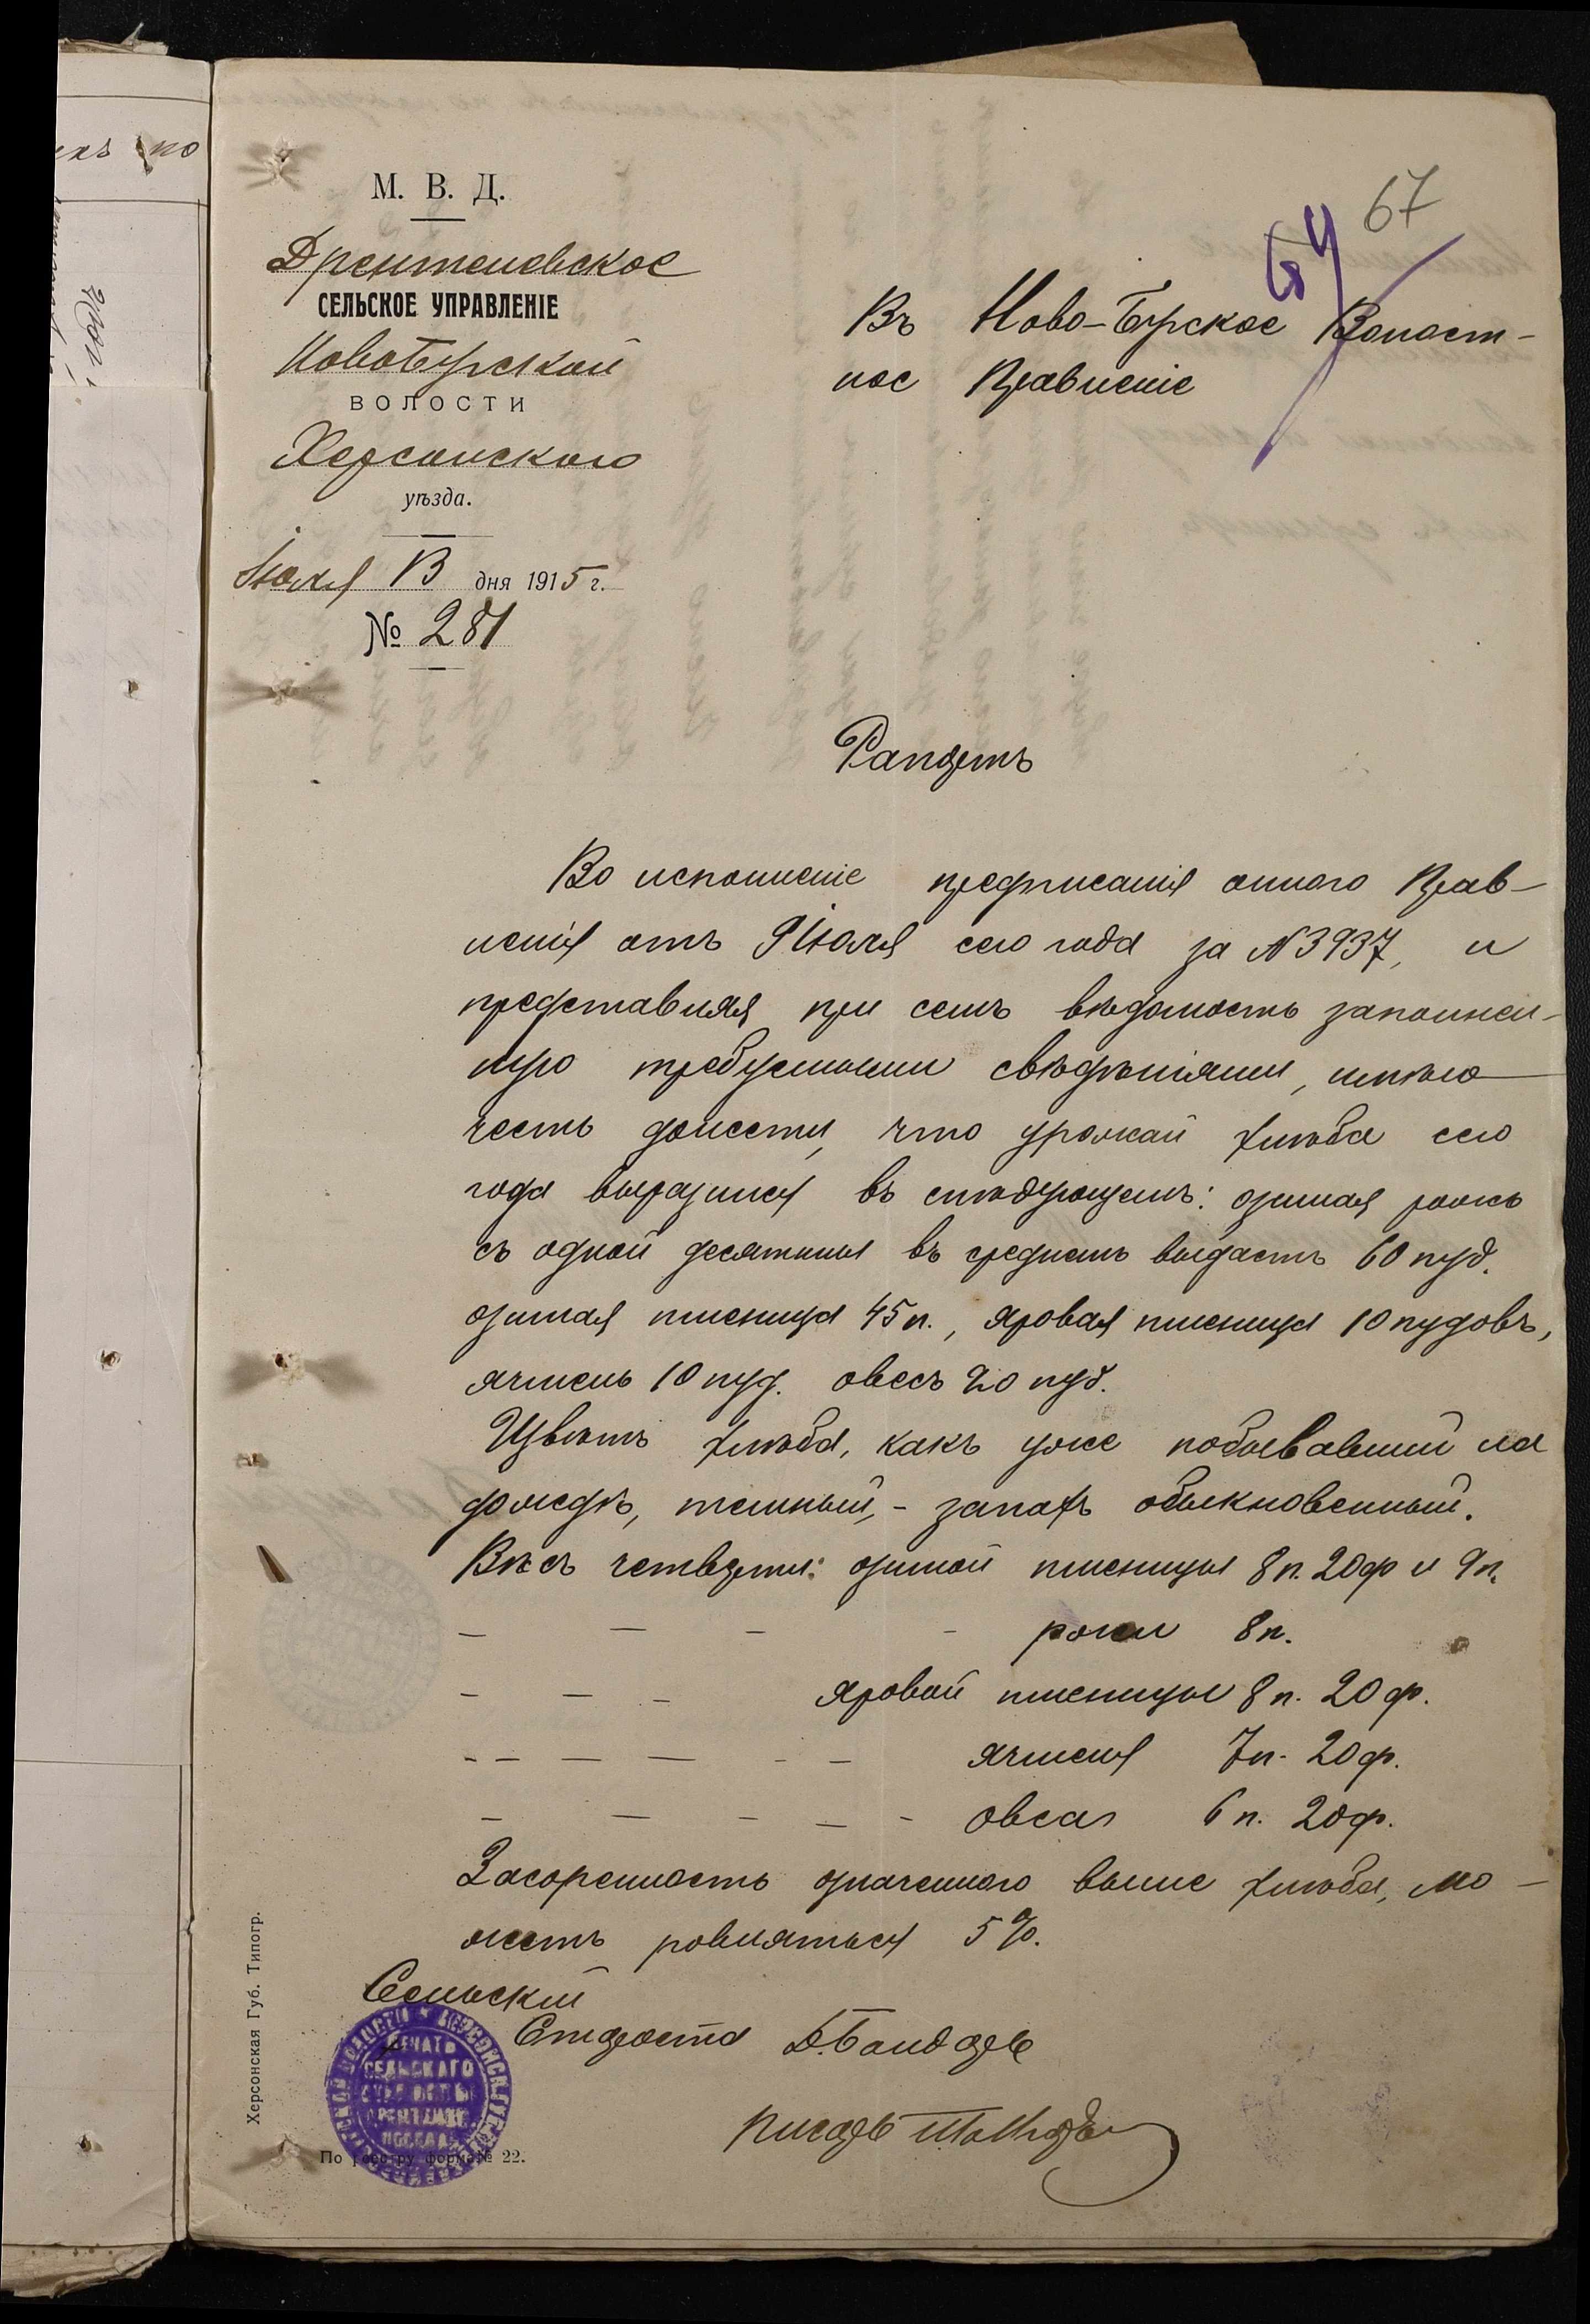 67
64
М. В. Д.
Дрентелновское
СЕЛЬСКОЕ УПРАВЛЕНІЕ
Новобургской
ВОЛОСТИ
Херсонского
уѣзда.
Іюля 13 дня 1915 г.
№ 281
Въ Ново-Бургское Волост-
ное Правленіе
Рапортъ
Во исполненіе предписанія онного Прав-
ленія отъ 9 Іюля сего года за N 3937, и
представляя при семъ вѣдомость заполнен-
ную требуемыми свѣдѣніями, имѣю
честь донести, что урожай хлѣба сего
года выразился въ слѣдующемъ: озимая рожь
съ одной десятины въ среднемъ выдастъ 60 пуд.
озимая пшеница 45 п., яровая пшеница 10 пудовъ,
ячмень 10 пуд. овесъ 20 пуд.
Цвѣтъ хлѣба, какъ уже побывавший на
дождѣ, темный, - запахъ обыкновенный.
Вѣсъ четверти: озимой пшеницы 8 п. 20 ф и 9 п.
— — - - рожи 8 п.
- — - яровой пшеницы 8 п. 20 ф.
- – — — - – ячменя 7 п. 20 ф.
– — – — - овса 6 п. 20 ф.
Засоренность означенного выше хлѣба, мо-
жетъ ровняться 5%.
Сельскій
Староста
Писарь
ПЕЧАТЬ
СЕЛЬСКАГО
СТАРОСТЫ
Херсонская Губ. Типогр.
По реестру форма № 22.